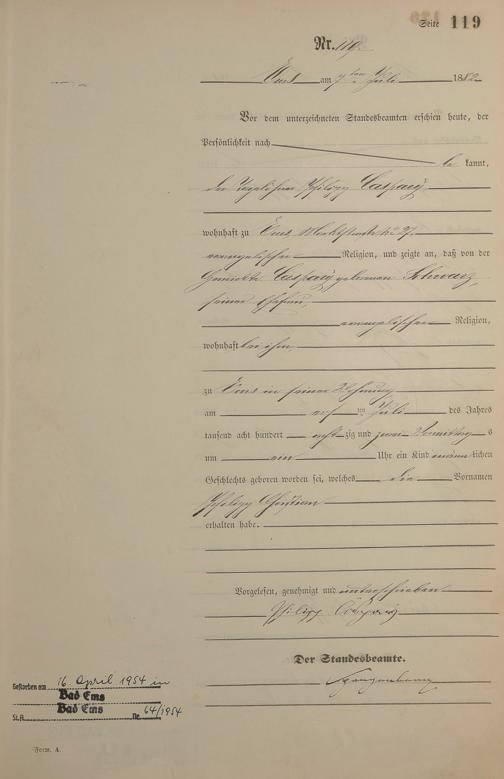 Seite 119
Nr. 119.
Ems am 7ten Juli 1882
Vor dem unterzeichneten Standesbeamten erschien heute, der
Persönlichkeit nach
be kannt,
der Tagelöhner Philipp Caspary
wohnhaft zu Ems
evangelischer Religion, und zeigte an, daß von der
Caspary geborenen Schwarz,
seiner Ehefrau,
evangelischer Religion,
wohnhaft bei ihm,
zu Ems in seiner Wohnung
am Juli des Jahres
tausend acht hundert acht zig und zwei Vormittags
um ein Uhr ein Kind männlichen
Geschlechts geboren worden sei, welches die Vornamen
Philipp Christian
erhalten habe.
Vorgelesen, genehmigt und unterschrieben
Philipp Caspary
Der Standesbeamte.
Gestorben am 16. April 1954 in
Bad Ems
St.A. Bad Ems Nr. 64/1954
Form. A.